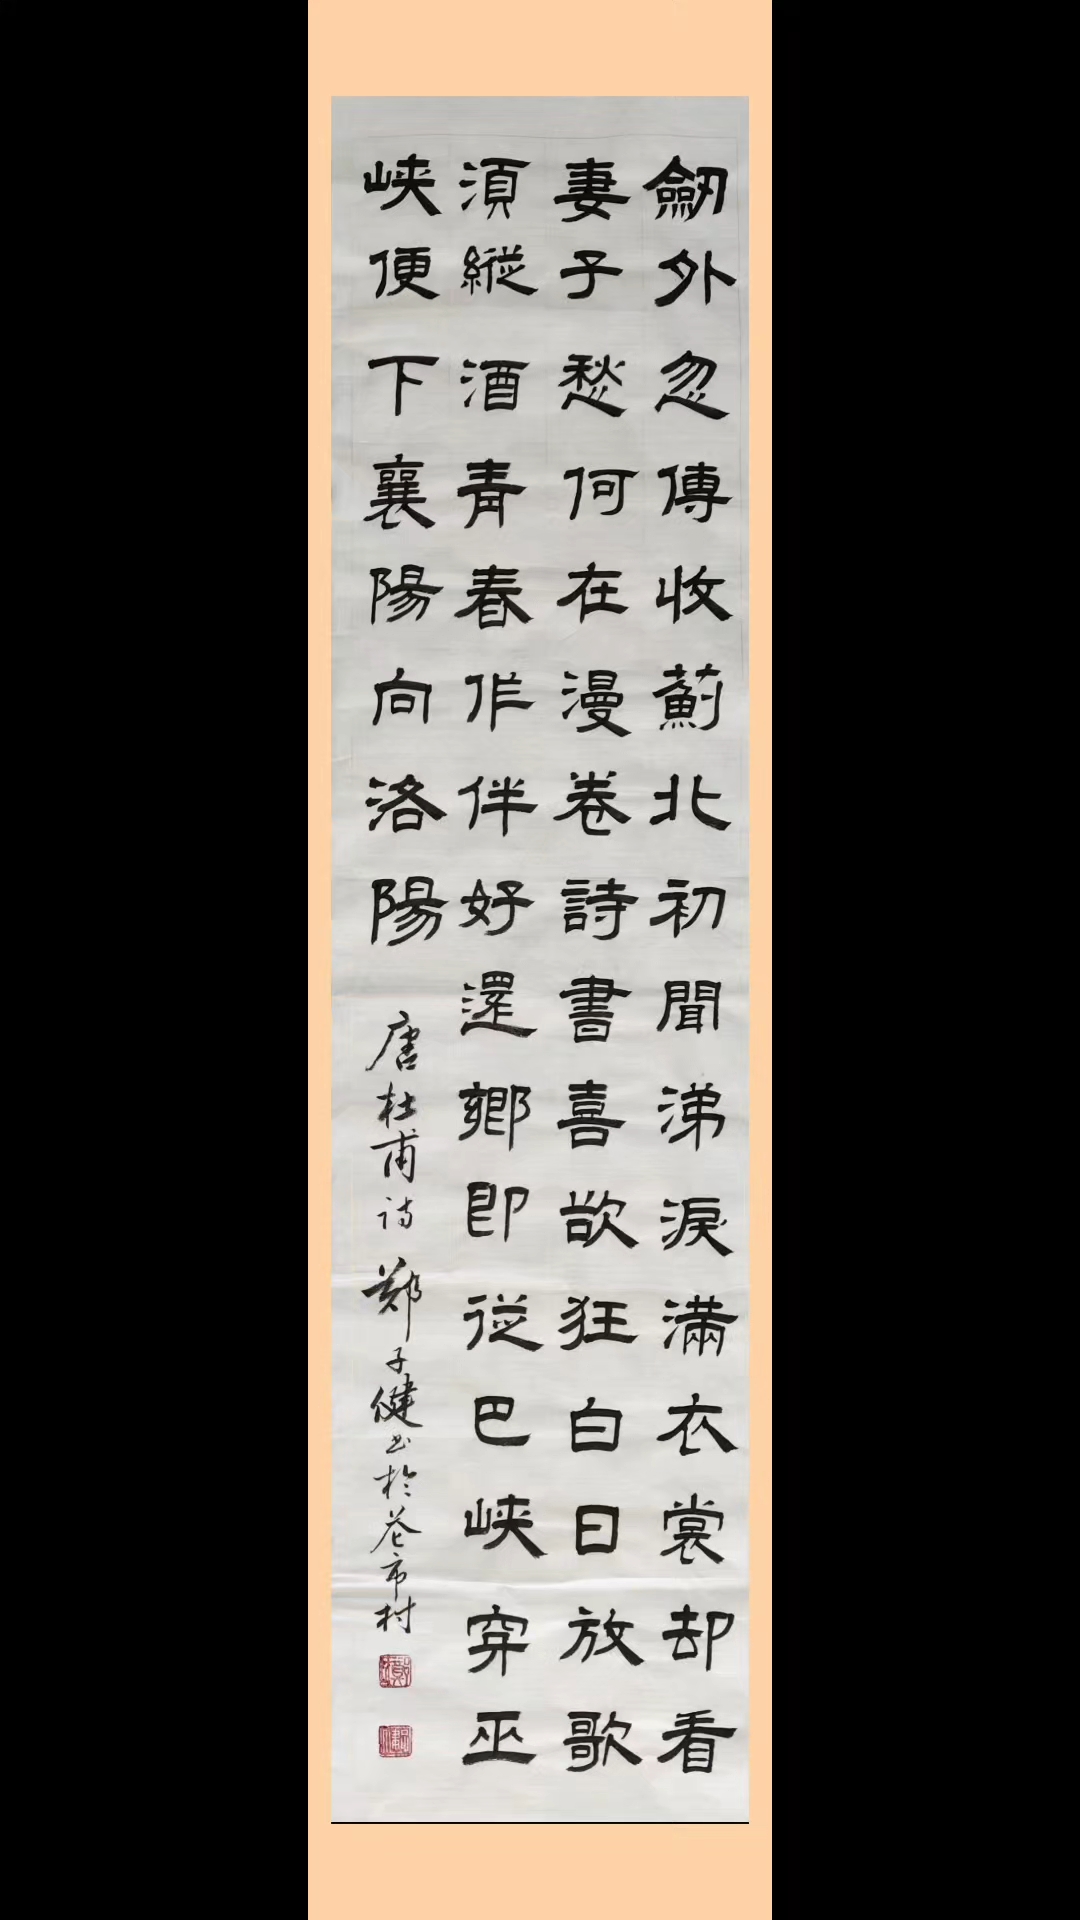 劒外忽傳收薊北初聞涕淚滿衣裳却看
妻子愁何在漫卷詩書喜欲狂白日放歌
須縦酒青春作伴好還鄉即從巴峽穿巫
峡便下襄陽向洛陽
唐杜甫诗 郑子健书於花市村